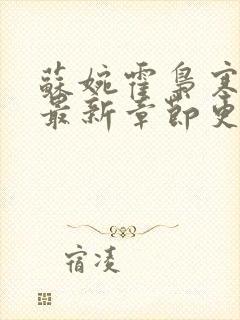 蘇婉霍梟寒
最新章節更
宿凌